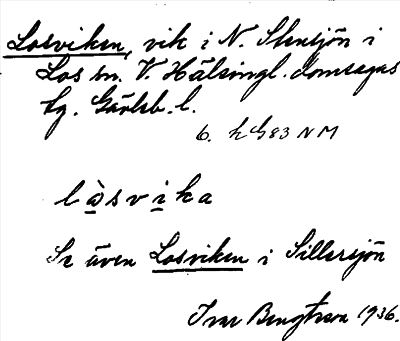 Losviken, vik i N. Stensjön i
Los sn. V. Hälsingl. domsagas
tg. Gävleb. l.
6. h G83 NM
lòsvika
Se även Losviken i Sillersjön
Ivar Bengtsson 1936.